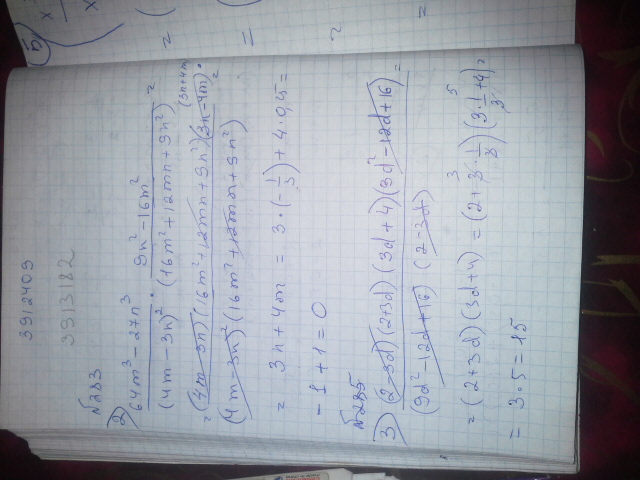 3912409
3913182
№283
2) 64m³-27n³ / (4m-3n)² · 9n²-16m² / (16m²+12mn+9n²) =
= (4m-3n)(16m²+12mn+9n²)(3n-4m)(3n+4m) /
(4m-3n)²(16m²+12mn+9n²) =
= 3n+4m = 3·(-1/3)+4·0,25=
-1+1=0
№285
3) (2-3d)(2+3d)(3d+4)(9d²-12d+16) / =
(9d²-12d+16)(2-3d)
= (2+3d)(3d+4) = (2+3·1/3)(3·1/3+4)=
3 5
= 3·5=15
5)